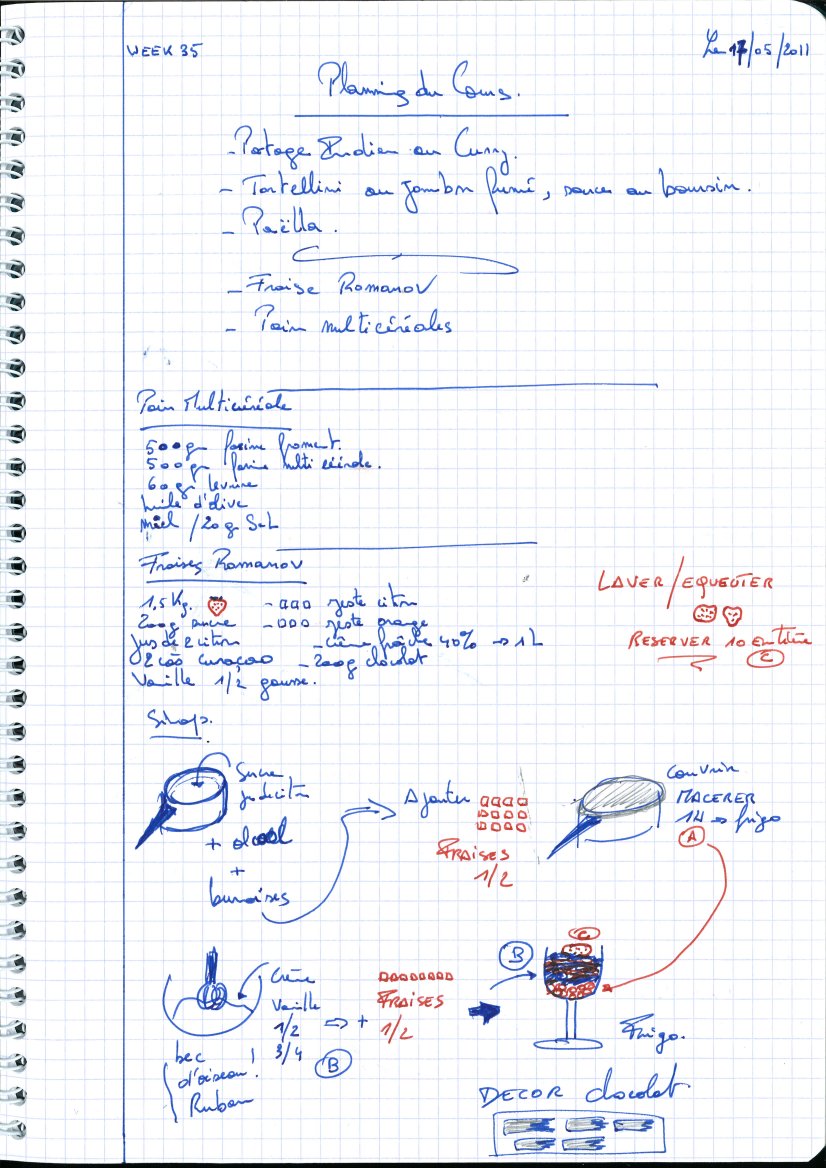 WEEK 35
Le 17/05/2011
Planning du Cours.
- Potage Indien au Curry.
- Tortellini au jambon fumé, sauce au boursin.
- Paëlla.
- Fraise Romanov
- Pain multicéréales
Pain Multicéréale
500gr farine froment.
500gr farine multi céréale.
60gr levure
huile d'olive
miel / 20g SeL
Fraises Romanov
1,5 Kg.
- zeste citron
200g sucre
- zeste orange
Jus de 2 citron
- crème fraîche 40% → 1L
2 càs curaçao
- 200g chocolat
Vanille 1/2 gousse.
LAVER/EQUEUTER
RESERVER 10 Entière
C
Sirop.
Sucre
jus de citron
+ alcool
+
brunoises
Ajouter
FRAISES
1/2
couvrir
MACERER
1H → frigo
A
Crème
Vanille
1/2
3/4
bec
d'oiseau !
Ruban
B
+
FRAISES
1/2
B
C
Frigo.
DECOR chocolat